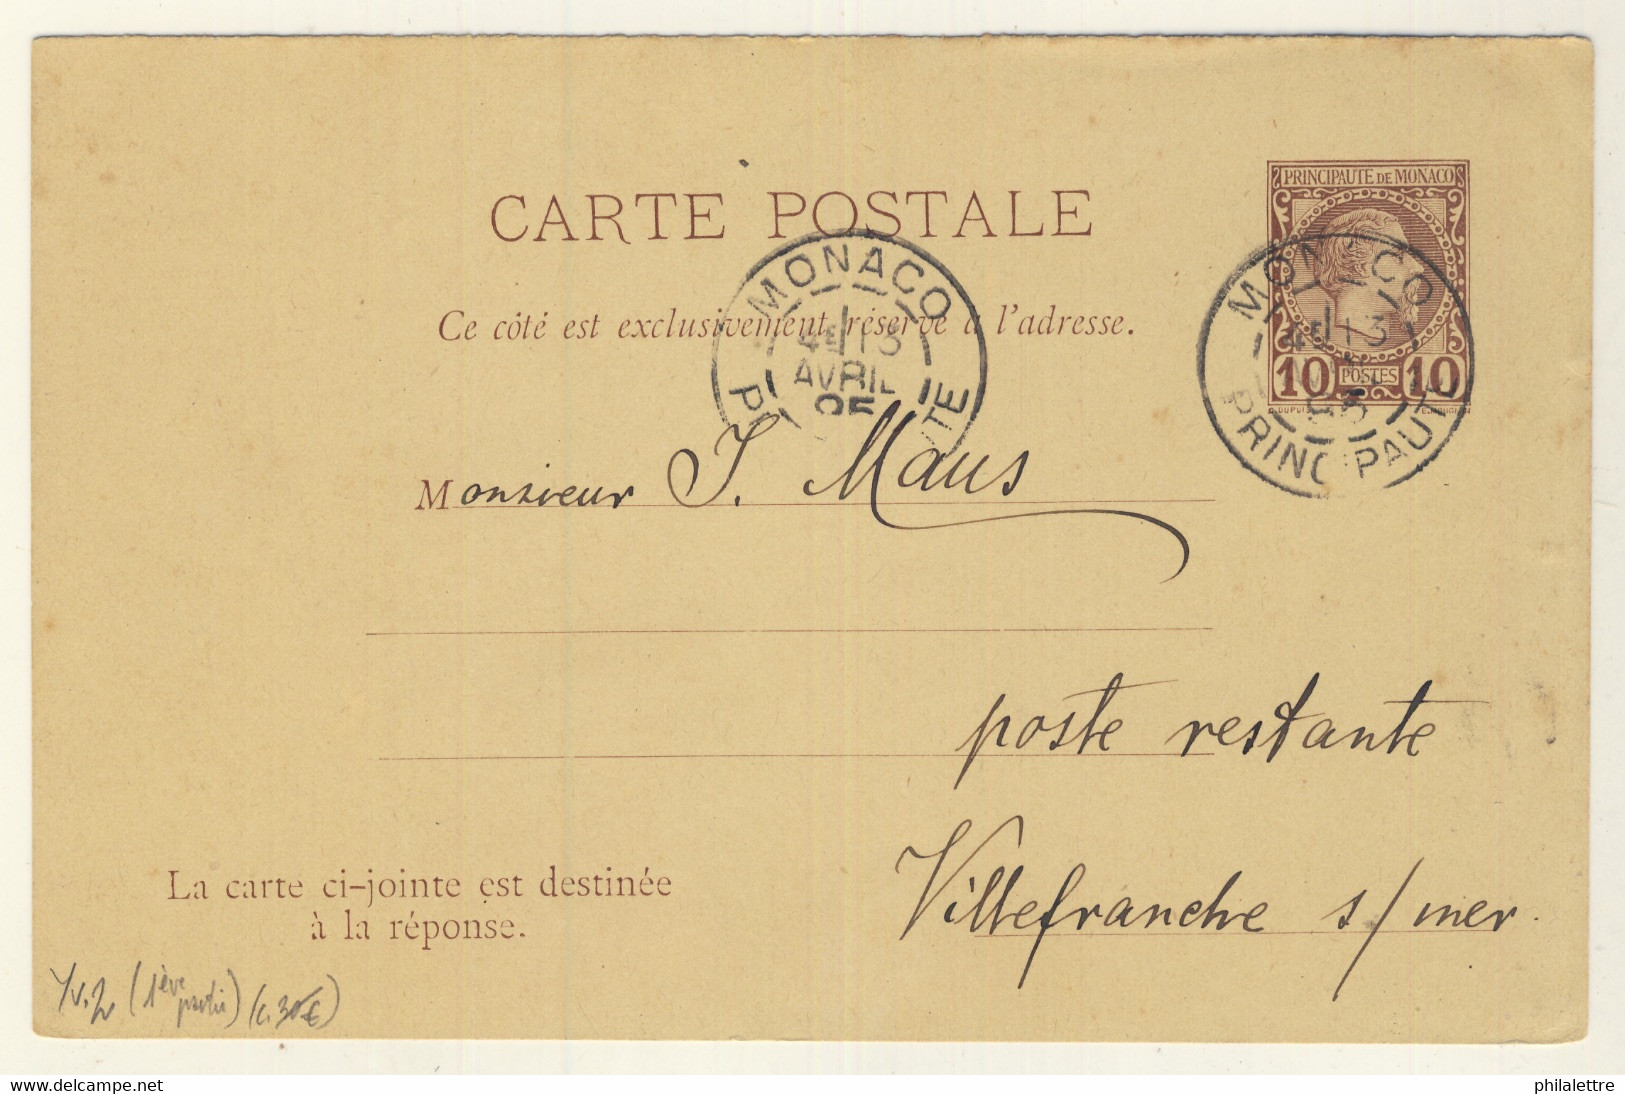 PRINCIPAUTE DE MONACO
CARTE POSTALE
MONACO
4E 13
AVRIL
95
MONACO
4E 13
95
PRINCIPAUTE
10 POSTES 10
Ce côté est exclusivement réservé à l'adresse.
Monsieur J. Maus
poste restante
Villefranche s/mer.
La carte ci-jointe est destinée
à la réponse.
Yv. 2 (1ève partie) (c. 30€)
delcampe.net
philalettre